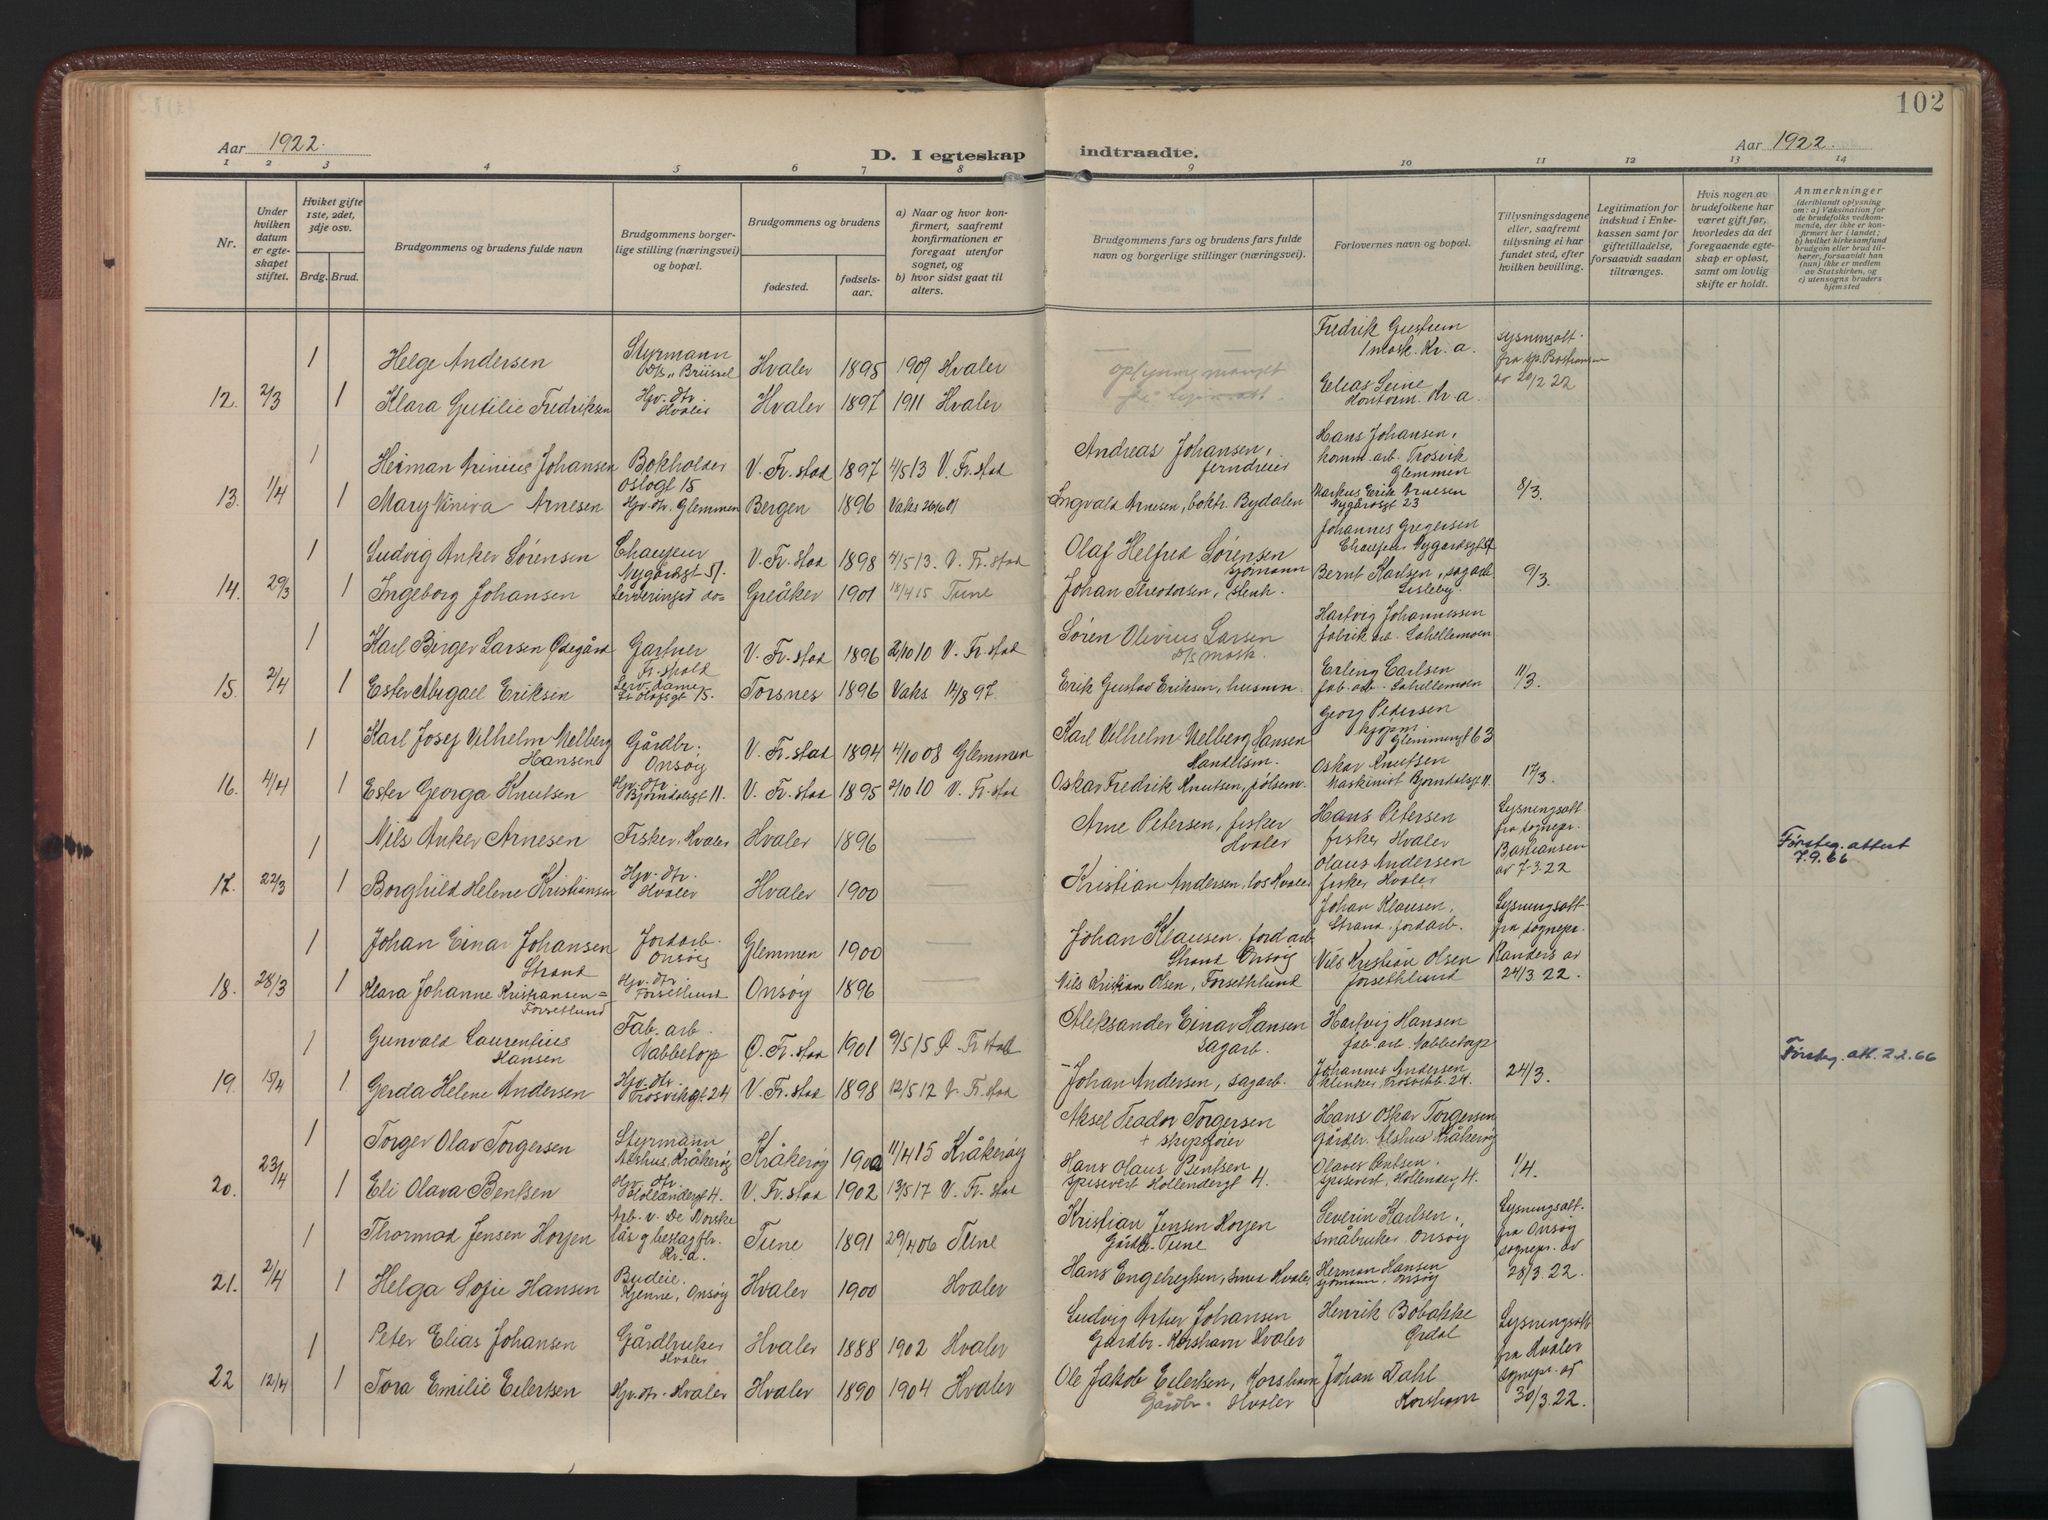 102
Aar 1922.
D. I egteskap indtraadte.
Aar 1922.
1 2 3 4 5 6 7 8 9 10 11 12 13 14
Nr.
Under hvilken datum er egteskapet stiftet.
Hviket gifte 1ste, 2det, 3dje osv.
Brdg. Brud.
Brudgommens og brudens fulde navn
Brudgommens borgerlige stilling (næringsvei) og bopæl.
Brudgommens og brudens
fødested.
fødselsaar.
a) Naar og hvor konfirmert, saafremt konfirmationen er foregaat utenfor sognet, og
b) hvor sidst gaat til alters.
Brudgommens fars og brudens fars fulde navn og borgerlige stillinger (næringsvei).
Forlovernes navn og bopæl.
Tillysningsdagene eller, saafremt tillysning ei har fundet sted, efter hvilken bevilling.
Legitimation for indskud i Enkekassen samt for giftetilladelse, forsaavidt saadan tiltrænges.
Hvis nogen av brudefolkene har været gift før, hvorledes da det foregaaende egteskap er opløst, samt om lovlig skifte er holdt.
Anmerkninger (deriblandt oplysning om: a) Vaksination for de brudefolks vedkommende, der ikke er konfirmert her i landet; b) hvilket kirkesamfund brudgom eller brud tilhører, forsaavidt han (hun) ikke er medlem av Statskirken, og c) utensogns bruders hjemsted
1 Helge Andersen Styrmann D/s "Brüssel Hvaler 1895 1909 Hvaler — — Fredrik Gustum 1 mask. Kr.a. Lysningsatt. fra sp. Bastiansen av 20/2 22
12. 2/3 1 Klara Gutilie Fredriksen Hjv. dtr. Hvaler Hvaler 1897 1911 Hvaler oplysning manglet Kr.a.
1 Herman Arinius Johansen Bokholder Oslogt 15 V. Fr.stad 1897 4/5 13 V. Fr.stad Andreas Johansen, ferndreier Hans Johansen, komm. arb. Trosvik Glemmen
13. 1/4 1 Mary Viniva Arnesen Hjv. dtr. Glemmen Bergen 1896 Vaks Ingvald Arnesen, boktr. Bydalen Markus Erik Arnesen Nygårdsgt 23 8/3.
1 Ludvig Anker Sørensen Chauffeur Nygårdsgt 51. V. Fr.stad 1898 4/5 13. V. Fr.stad Olaf Helfred Sørensen sjømann Johannes Gregersen Chauffeur Nygårdsgt 51
14. 29/3 1 Ingeborg Johansen Serveringsd. do- Greåker 1901 18/4 15 Tune Johan Theodorsen, stenh. Bernt Karlsen, sagarb. Lisleby. 9/3.
1 Karl Birger Larsen Ødegård Gartner Fr.shald V. Fr.stad 1896 2/10 10 V. Fr.stad Søren Olivius Larsen d/s mask. Hartvig Johannessen fabrik arb. Lahellemoen
15. 2/4 1 Ester Abigael Eriksen Serv. dame St. Olafsgt 15. Torsnes 1896 Vaks. 14/8 97. Erik Gustav Eriksen, husmn. Erling Carlsen fab. arb. Lahellemoen 11/3.
1 Karl Josef Vilhelm Melberg Hansen Gårdbr. Onsøy V. Fr.stad 1894 4/10 08 Glemmen Karl Vilhelm Melberg Hansen Handelsm. Georg Pedersen kjøpm. Glemmengt 63
16. 4/4 1 Ester Georga Knutsen Hjv. dtr. Bjørndalsgt 11. V. Fr.stad 1895 2/10 10 V. Fr.stad Oskar Fredrik Knutsen, pølsem. Oskar Knutsen Maskinist Bjørndalsgt 11. 17/3.
1 Nils Anker Arnesen Fisker, Hvaler Hvaler 1896 — Arne Petersen, fisker Hvaler Hans Petersen fisker Hvaler Lysningsatt. fra sognepr. Bastiansen av 7-3.22 Førsteg. attest 7.9.66
17. 22/3 1 Borghild Helene Kristiansen Hjv. dtr. Hvaler Hvaler 1900 — Kristian Andersen, los Hvaler Olaus Andersen fisker Hvaler
1 Johan Einar Johansen Strand Jordarb. Onsøy Glemmen 1900 — Johan Klausen, jordarb. Strand Onsøy Johan Klausen, Strand, jordarb. Lysningsatt. fra sognepr. Randers av 24/3.22.
18. 28/3 1 Klara Johanne Kristiansen = Forsetlund Hjv. dtr. Forsetlund Onsøy 1896 Nils Kristian Olsen, Forsethlund Nils Kristian Olsen Forsethlund
1 Gunvald Laurentius Hansen Fab. arb. Nabbetorp Ø. Fr.stad 1901 9/5 15 Ø. Fr.stad Aleksander Einar Hansen sagarb. Hartvig Hansen fab. arb. Nabbetorp Førsteg. att. 2.2.66
19. 15/4 1 Gerda Helene Andersen Hjv. dtr. Trosvikgt 24 V. Fr.stad 1898 12/5 12 V. Fr.stad Johan Andersen, sagarb. Johannes Andersen 24/3.
1 Torger Olav Torgersen Styrmann Alshus, Kråkerøy Kråkerøy 1900 11/4 15 Kråkerøy Aksel Teador Torgersen + skipsfører Hans Oskar Torgersen Gårdbr. Alshus Kråkerøy
20. 23/4 1 Eli Olava Bentsen Hjv. dtr. Hollendergt 4. V. Fr.stad 1902 13/5 17 V. Fr.stad Hans Olaus Bentsen spisevert Hollendergt 4. Olaves Bentsen. Spisevert, Hollenderg 4. 1/4.
1 Thormod Jensen Horjen Arb. v. De Norske lås g beslagfbr. Kr.a. Tune 1891 29/4 06 Tune Kristian Jensen Horjen Gårdb. Tune Severin Karlsen, småbruker Onsøy Lysningsatt. fra Onsøy sognepr. av 28/3.22.
21. 2/4 1 Helga Sofie Hansen Budeie. Kjenne, Onsøy Hvaler 1900 Hvaler Hans Engelregtsen, smed Hvaler, Herman Hansen sjømann, Onsøy
1 Peter Elias Johansen Gårdbruker Hvaler Hvaler 1888 1902 Hvaler Ludvig Anker Johansen Gårdbr. Korshavn Hvaler Henrik Bobakke Ørdal Lysningsatt fra Hvaler sognepr. av 30/3.22.
22 12/4 1 Tora Emilie Eilertsen Hjv. dtr. Hvaler Hvaler 1890 1904 Hvaler Ole Jakob Eilertsen, Korshavn Gårdbr. Hvaler Johan Dahl Korshavn